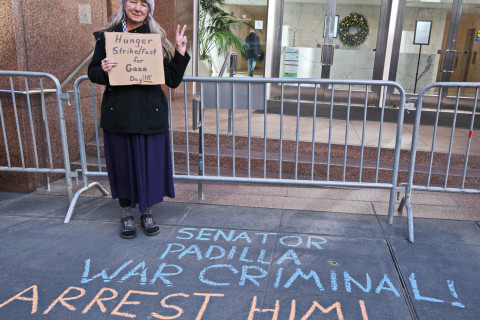 Hunger
Strike/Fast
for Gaza
Day
SENATOR
PADILLA
WAR CRIMINAL!
ARREST HIM!